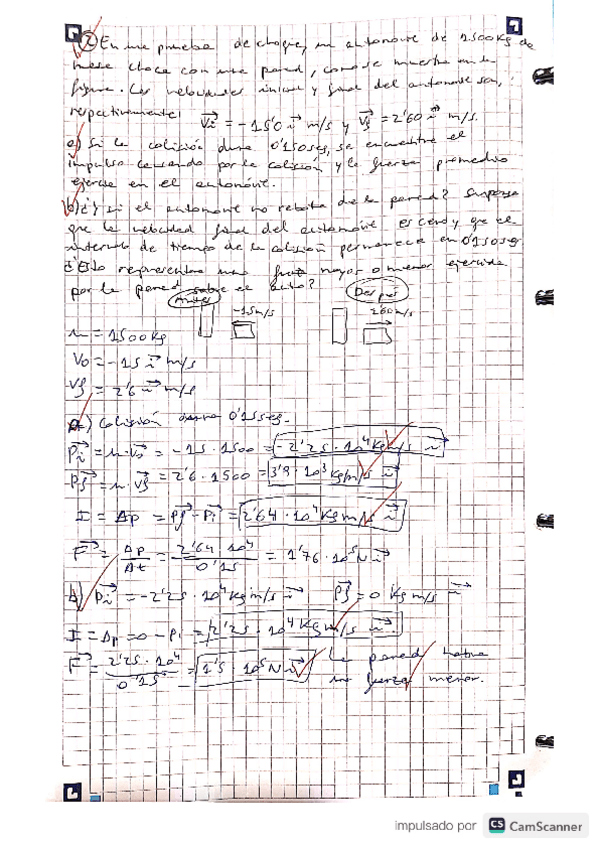 ② En una prueba de choque, un automóvil de 1500Kg de
masa choca con una pared, como se muestra en la
figura. Las velocidades inicial y final del automóvil son,
respectivamente: Vi = -15'0 i m/s y Vf = 2'60 i m/s.
a) Si la colisión dura 0'150seg, se encuentre el
impulso causado por la colisión y la fuerza promedio
ejercida en el automóvil.
b) ¿Y si el automóvil no rebota de la pared? Suponga
que la velocidad final del automóvil es cero y que el
intervalo de tiempo de la colisión permanece en 0'150seg
¿Esto representaría una fuerza mayor o menor ejercida
por la pared sobre el auto?
Antes -15m/s Después 2'60m/s
m = 1500Kg
Vo = -15 i m/s
Vf = 2'6 i m/s
a) Colisión dura 0'15seg.
Pi = m·vo = -15 · 1500 = -2'25 · 10⁴ Kg m/s i
Pf = m·vf = 2'6 · 1500 = 3'9 · 10³ Kg m/s i
I = Δp = Pf - Pi = 2'64 · 10⁴ Kg m/s i
F = Δp/Δt = 2'64 · 10⁴/0'15 = 1'76 · 10⁵ N i
b) Pi = -2'25 · 10⁴ Kg m/s i Pf = 0 Kg m/s i
I = Δp = 0 - Pi = 2'25 · 10⁴ Kg m/s i
F = 2'25 · 10⁴/0'15 = 1'5 10⁵ N i La pared
una fuerza menor.
impulsado por CS CamScanner